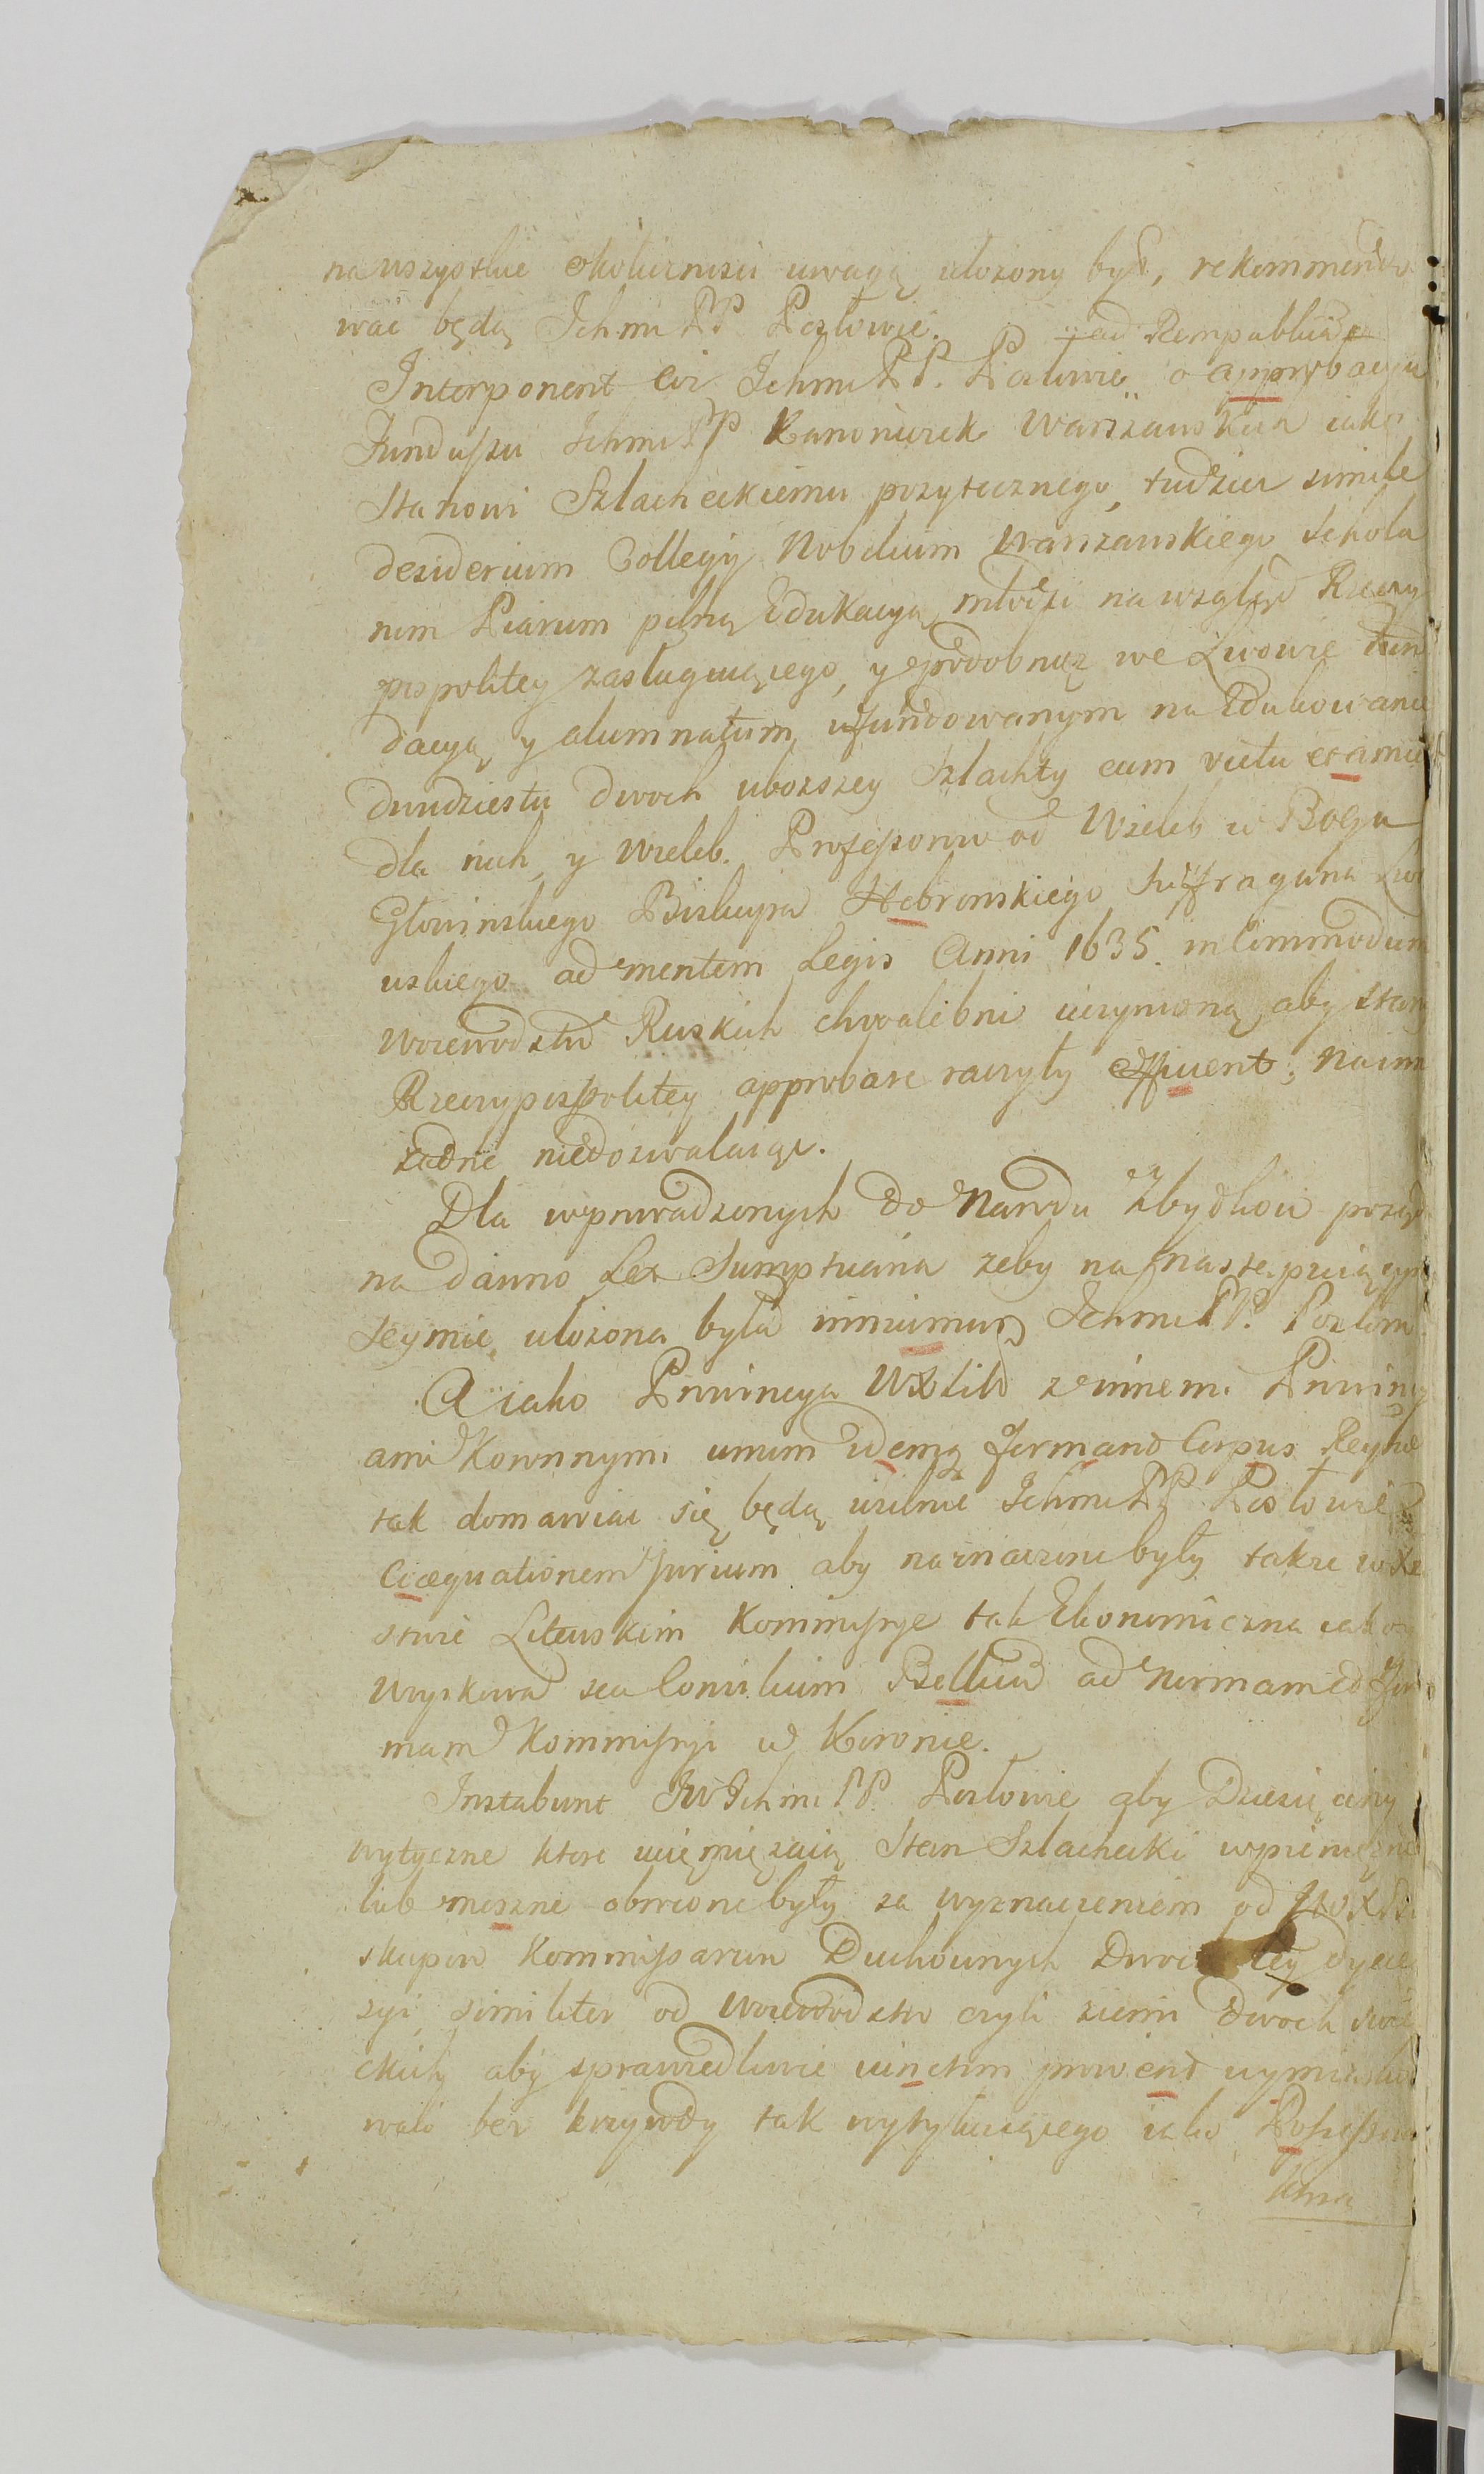 na wszystkie okolicznosci uwagą ułozony był, rekommendo
wac będą Ichmć PP Posłowie.
ad Rempublicam
Interponent się Ichmć PP. Posłowie o approbacyą
Funduszu Ichmć PP Kanoniczek Warszawskich iako
Stanowi Szlacheckiemu pozytecznego, tudziez simile
desiderium Collegij Nobilium Warszawskiego Schola
rum Piarum pilną Edukacyą młodzi na wzgląd Rzeczy
pospolitey zasługuiącego, y podobnąz we Lwowie Fun
dacyą y alumnatum ufundowanym na Edukowanie
dwudziestu dwoch ubozszey Szlachty cum victu et amictu
dla nich y Wieleb. Professorow od Wieleb w Bogu
Głowinskiego Biskupa Hebronskiego Suffragana Lwo
wskiego ad mentem Legis Anni 1635. in Commodum
Woiewodztw Ruskich chwalebnie uczynioną, aby stany
Rzeczypospolitey approbare raczyły efficient, na inne
zadne niedozwalaiąc.
Dla wprowadzonych do Narodu Zbytkow
na dawno Lex Sumptuaria zeby na nastepuiącym
Seymie ułozona była iniungimus Ichmć PP. Posłom.
A iako Prowincya WXLitt z innemi Prowincy
ami Koronnymi unum idemq formand Corpus
tak domawiac się będą usilnie Ichmć PP Posłowie
Coæquationem Jurium aby naznaczone były takze w Xię
stwie Litewskim Kommissye tak Ekonomiczna iako y
Woyskowa seu Consilium Bellicum ad Normam et For
mam Kommissyi w Koronie.
Instabunt JWIchmć PP. Posłowie aby Dziesięciny
wytyczne ktore uciemięzaią Stan Szlachecki w pienięzne
lub meszne obrocone były za wyznaczeniem od JWXX Bi
skupow Kommissarzow Duchownych Dwoch tey dyece
zyi, similiter od Woiewodztw czyli ziemi dwoch swie
ckich, aby sprawiedliwie provent wymiarko
wali bez krzywdy tak wytykaiącego iako Possessora
ktora